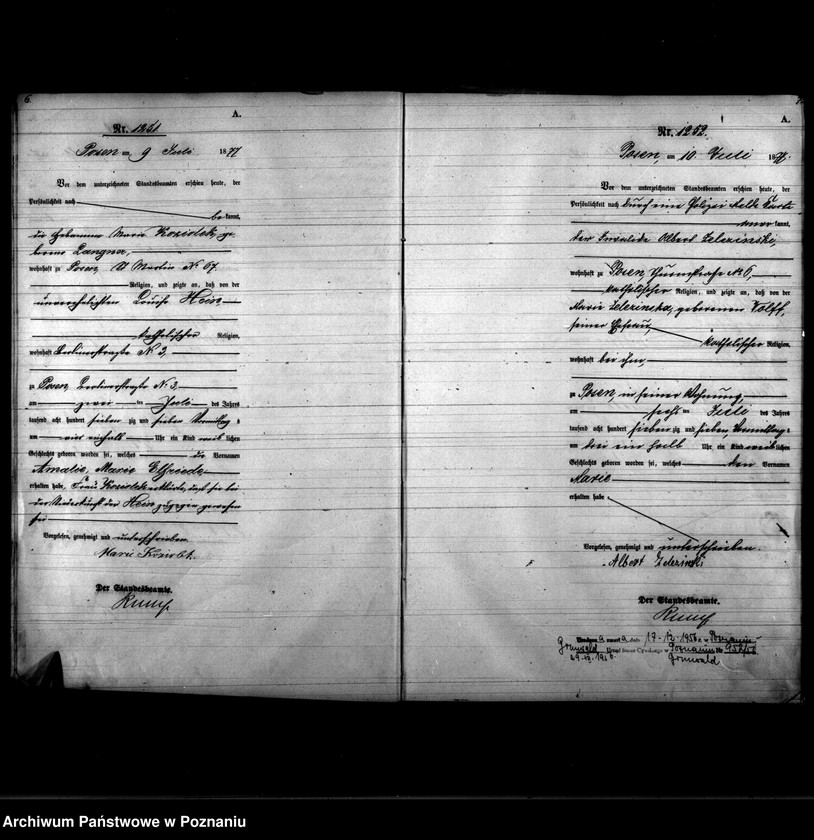 6.
A.
Nr. 1251
Posen am 9 Juli 1877
Vor dem unterzeichneten Standesbeamten erschien heute, der
Persönlichkeit nach
bekannt,
die Hebamme Marie Koziolek, ge-
borene Langner,
wohnhaft zu Posen St Martin No 67.
Religion, und zeigte an, daß von der
unverehelichten Louise Hein
katholischer Religion,
wohnhaft Berlinerstraße No 2,
zu Posen, Berlinerstraße No 2
am zwei ten Juli des Jahres
tausend acht hundert sieben zig und sieben Vormittags
um vier einhalb Uhr ein Kind weib lichen
Geschlechts geboren worden sei, welches die Vornamen
Amalie, Marie Elfriede
erhalten habe. Frau Koziolek erklärte, daß sie bei
der Niederkunft der Hein zugegen gewesen
sei
Vorgelesen, genehmigt und unterschrieben.
Marie Koziolek.
Der Standesbeamte.
A.
Nr. 1252.
Posen, am 10. Juli 1877.
Vor dem unterzeichneten Standesbeamten erschien heute, der
Persönlichkeit nach durch eine Polizei Karte
kannt,
der Invalide Albert Zelezinski,
wohnhaft zu Posen, Thurmstraße No 6,
katholischer Religion, und zeigte an, daß von der
Marie Zelezinska, geborenen Wolff,
seiner Ehefrau,
katholischer Religion,
wohnhaft bei ihm,
zu Posen, in seiner Wohnung,
am sechs ten Juli des Jahres
tausend acht hundert sieben zig und sieben, Vormittags
um drei ein halb Uhr ein Kind weib lichen
Geschlechts geboren worden sei, welches den Vornamen
Marie
erhalten habe
Vorgelesen, genehmigt und unterschrieben.
Albert Zelezinski
Der Standesbeamte.
a zmarł a dnia 17-12-1956 r. w Poznaniu-
Grunwald Urząd Stanu Cywilnego w Poznaniu Nr 952/56
Grunwald
Archiwum Państwowe w Poznaniu